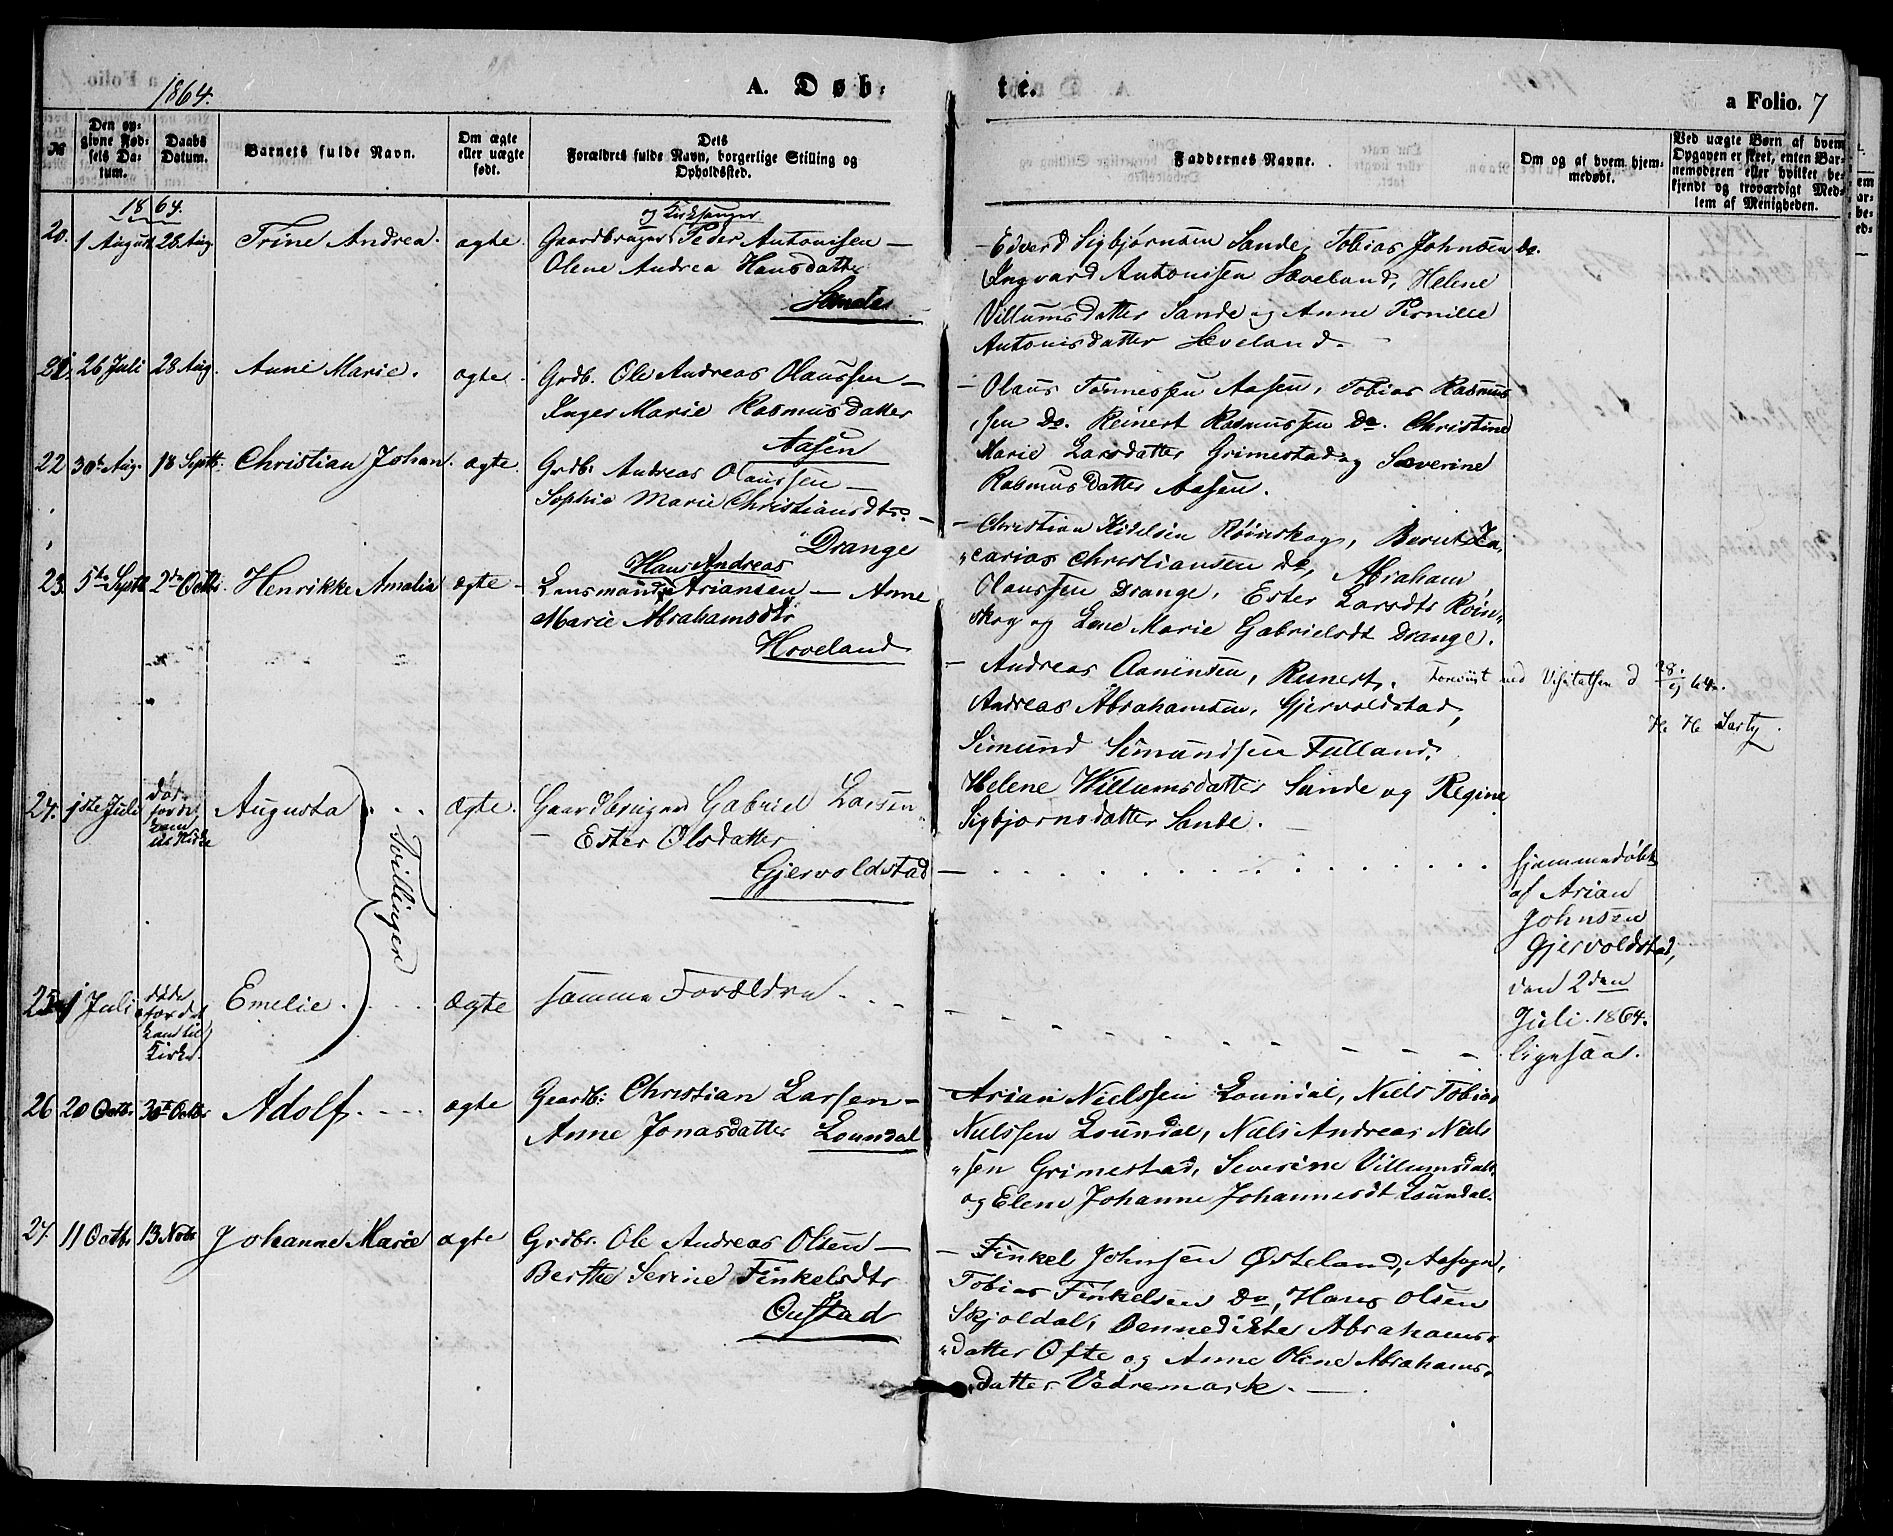 1864.
A. Døb:
te.
a Folio. 7
№
Den opgivne Fødsels Datum.
Daabs Datum.
Barnets fulde Navn.
Om ægte eller uægte født.
Dets Forældres fulde Navn, borgerlige Stilling og Opholdssted.
Faddernes Navne.
Om og af hvem hjemmedøbt.
Ved uægte Børn af hvem Opgaven er skeet, enten Barnemoderen eller hvilket bekjendt og troværdigt Medlem af Menigheden.
1864.
20. 1 August 28 Aug. Trine Andrea. ægte. Gaardbruger og Kirksanger Peder Antonisen —
Olene Andrea Hansdatter
Sande
— Edvard Sigbjørnsen Sande, Tobias Johnsen do.
Ingvard Antonisen Sæveland, Helene
Villumsdatter Sande og Anne Pernille
Antonisdatter Sæveland.
21. 26 Juli 28 Aug. Anne Marie. ægte. Grdb. Ole Andreas Olaussen —
Inger Marie Rasmusdatter
Aasen
— Olaus Tønnessen Aasen, Tobias Rasmus
sen Do. Reinert Rasmussen Do. Christine
Marie Larsdatter Grimestad og Severine
Rasmusdatter Aasen.
22 30te Aug. 18 Septb. Christian Johan. ægte. Grdb. Andreas Olaussen —
Sophie Marie Christiansdtr. —
Drange
— Christian Røinskog, Bernt Za,
carias Christiansen do, Abraham
Olaussen Drange, Ester Larsdtr Røin,
skog og Lene Marie Gabrielsdt Drange.
23. 5te Septb 2den Octbr. Henrikke Amalia ægte — Hans Andreas
Lensmand Ariansen — Anne
Marie Abrahamsdtr
Hoveland
— Andreas Aanensen, Reinert,
Andreas Abrahamsen, Gjervoldstad,
Simund Simundsen Fulland,
Helene Willumsdatter Sande og Regine
Sigbjørnsdatter Sande. —
Foreviist ved Visitatsen d 28/9 64.
24. 1ste Juli død før det kom til Kirke Augusta ægte. Gaardbruger Gabriel Larsen
— Ester Olsdatter
Gjervoldstad —
Tvillinger
Hjemmedøbt
af Arian
Johnsen
Gjervoldstad,
den 2den
Juli. 1864.
25 1 Juli døde før det kom til Kirke. Emelie. ægte samme Forældre.
ligesaa.
26 20 Octbr 30te Octbr Adolf. ægte Gaardb: Christian Larsen —
Anne Jonasdatter Loundal
Arian Nielssen Loundal, Niels Tobias
Nielssen Loundal, Niels Andreas Niels
sen Grimestad, Severine Villumsdatt.
og Elene Johanne Johannesdt Loundal.
27. 11 Octbr 13 Novbr Johanne Marie ægte Grdbr. Ole Andreas Olsen —
Berthe Serine Finkelsdtr
Oustad
— Finkel Johnsen Østeland, Aasogn,
Tobias Finkelsen Do, Hans Olsen
Skjoldal, Bennedikte Abrahams,
datter Ofte og Anne Oline Abrahams,
datter Vedremark. —